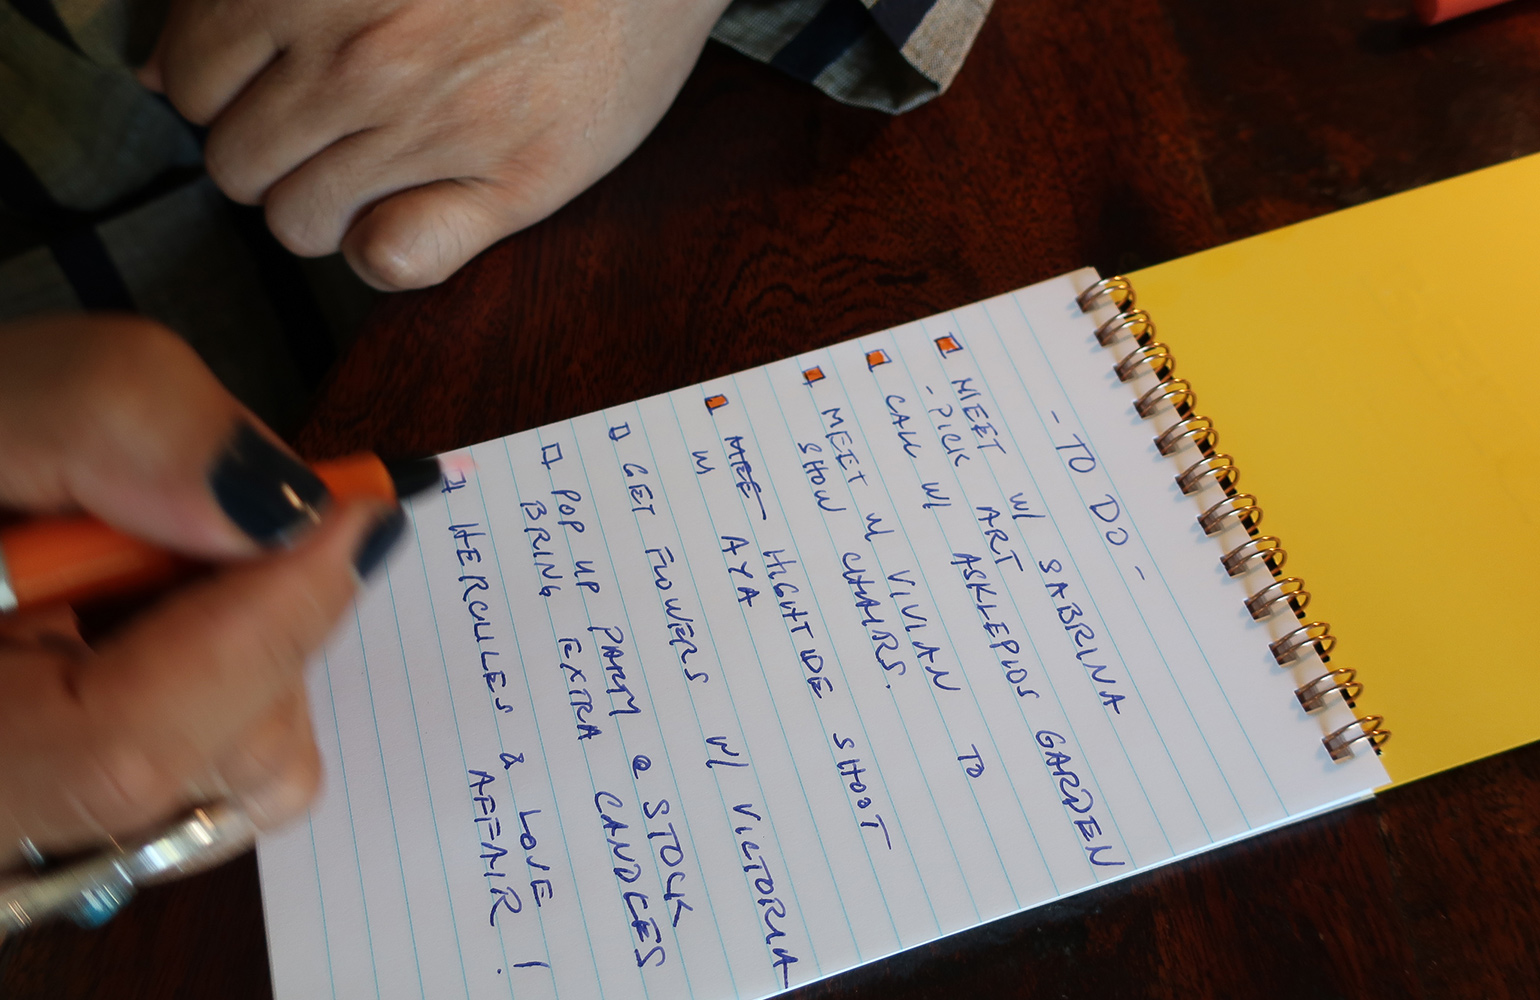 - TO DO -
MEET W/ SABRINA
- PICK ART
CALL W/ ASKLEPIOS GARDEN
MEET W/ VIVIAN TO
SHOW CHAIRS.
MEET HIGHTIDE SHOOT
W AYA
GET FLOWERS W/ VICTORIA
POP UP PARTY @ STOCK
BRING EXTRA CANDLES
HERCULES & LOVE
AFFAIR !